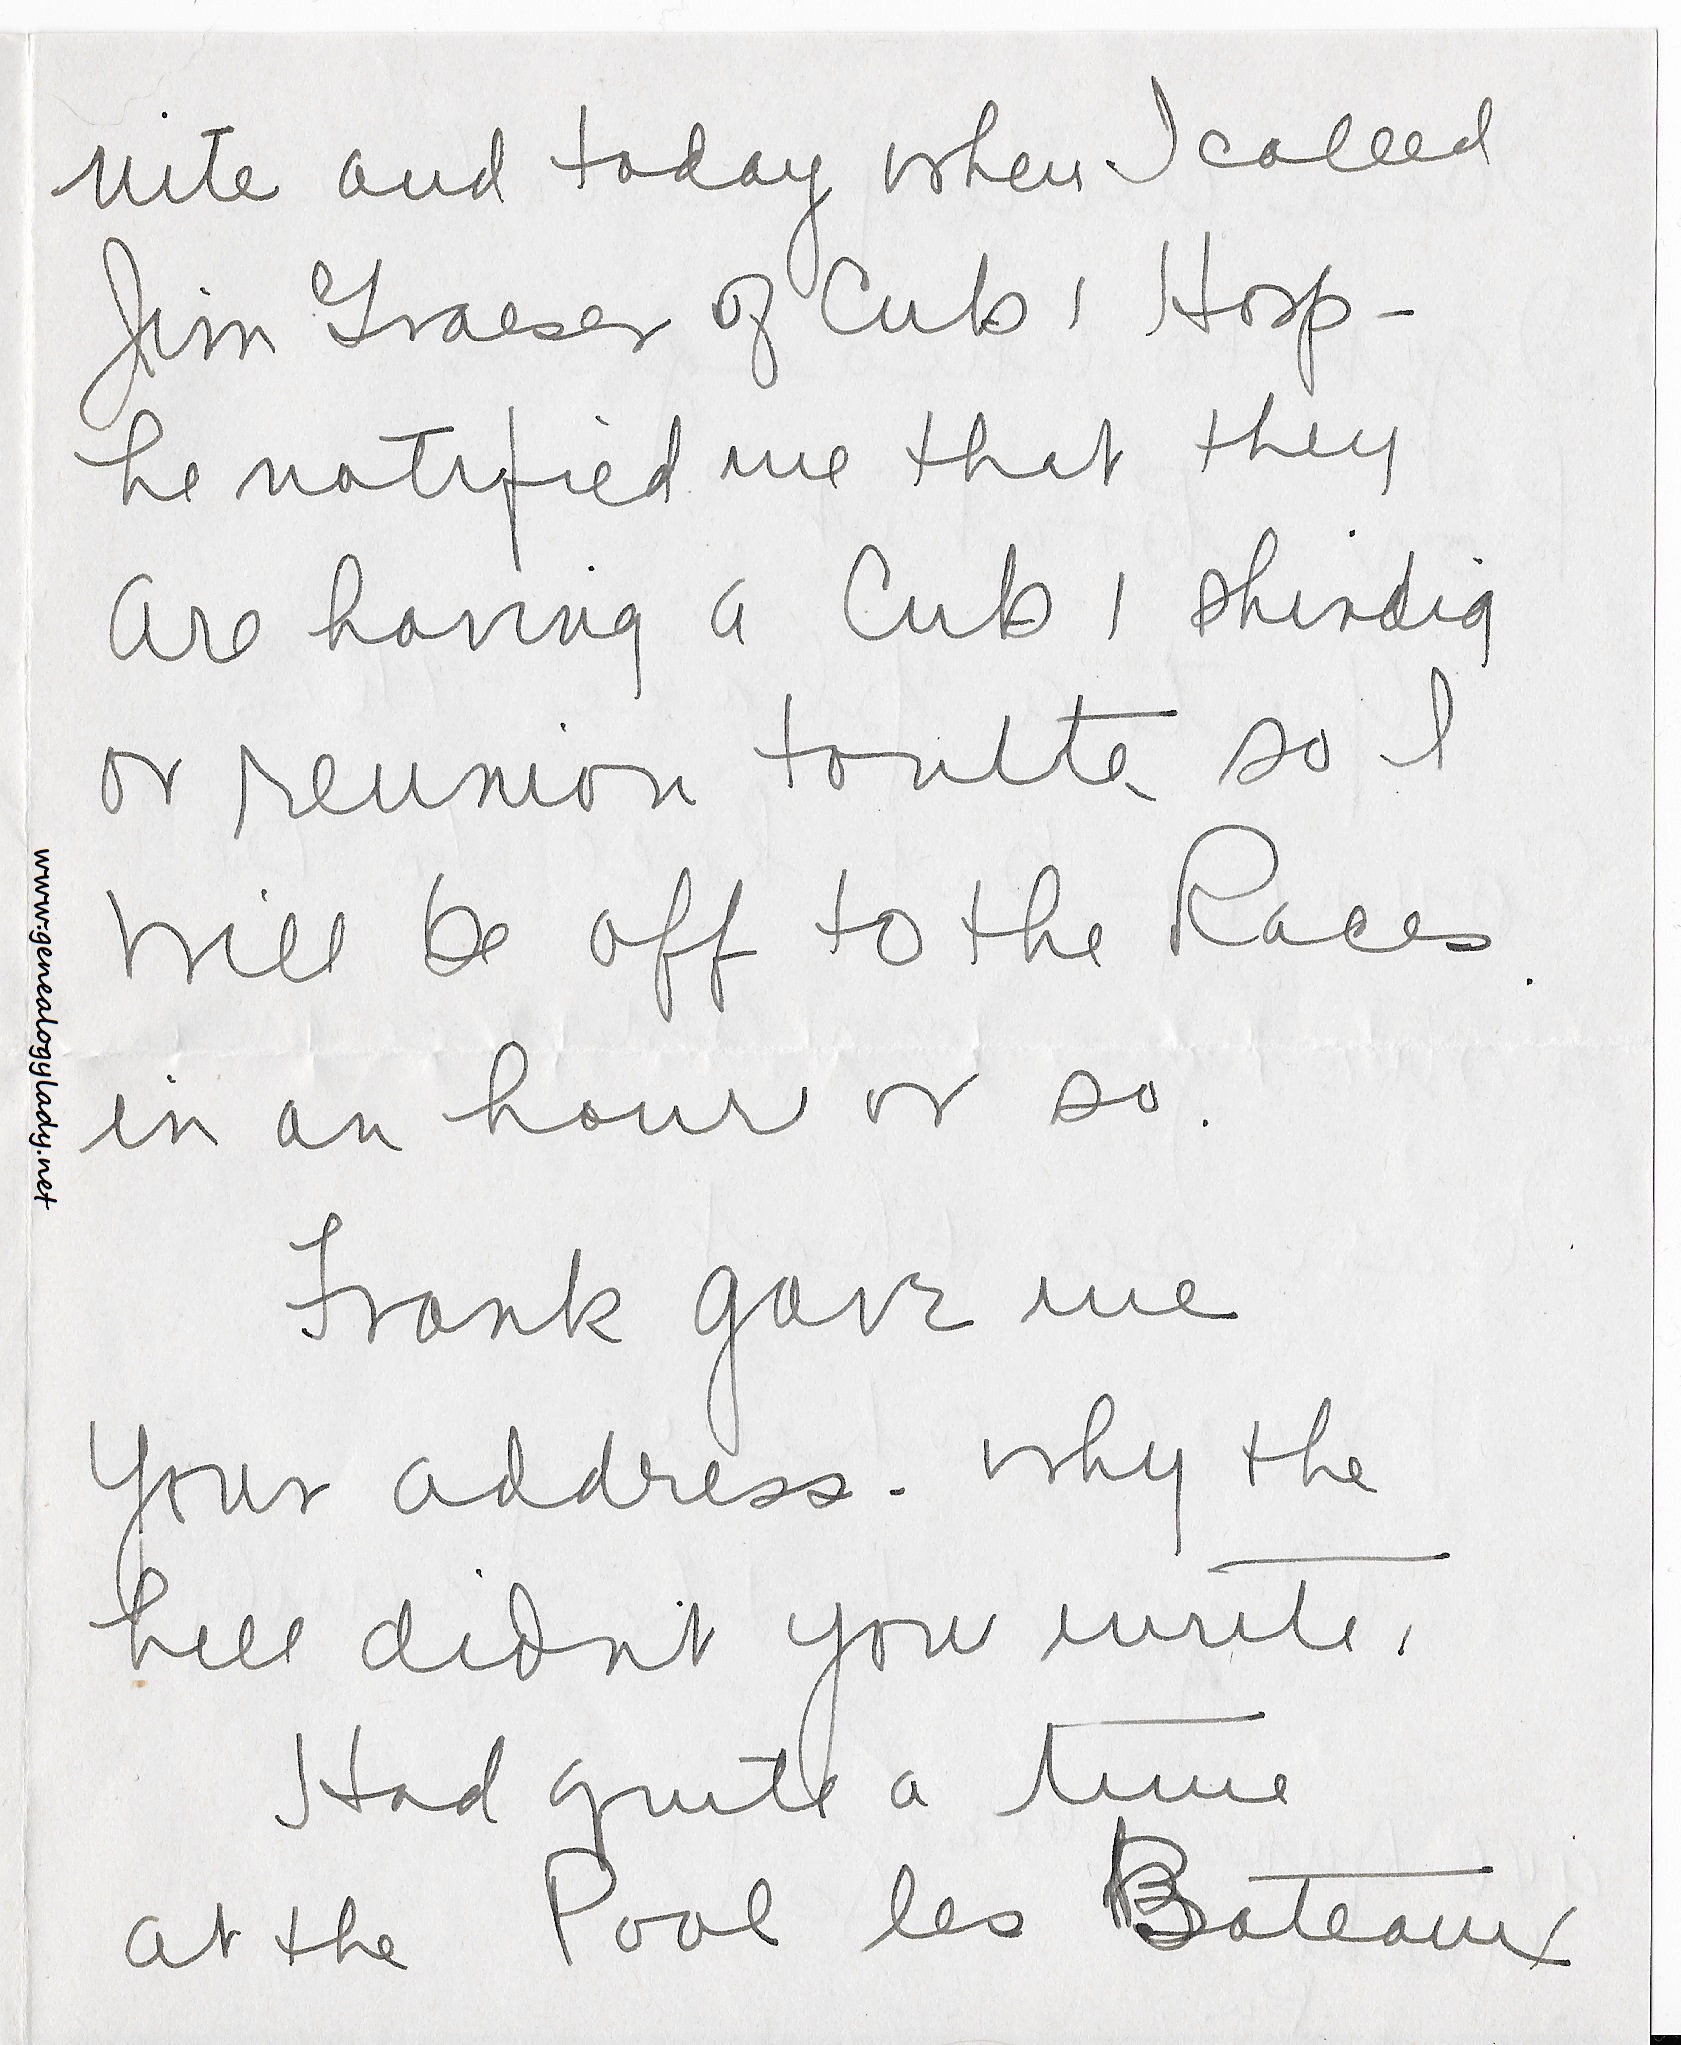 nite and today when I called
Jim Graeser of Cub 1 Hosp-
he notified me that they
are having a Cub 1 shindig
or reunion tonite so I
will be off to the Races.
in an hour or so.
Frank gave me
your address. why the
hell didn't you write.
Had quite a time
at the Pool les Bateaux
www.genealogylady.net